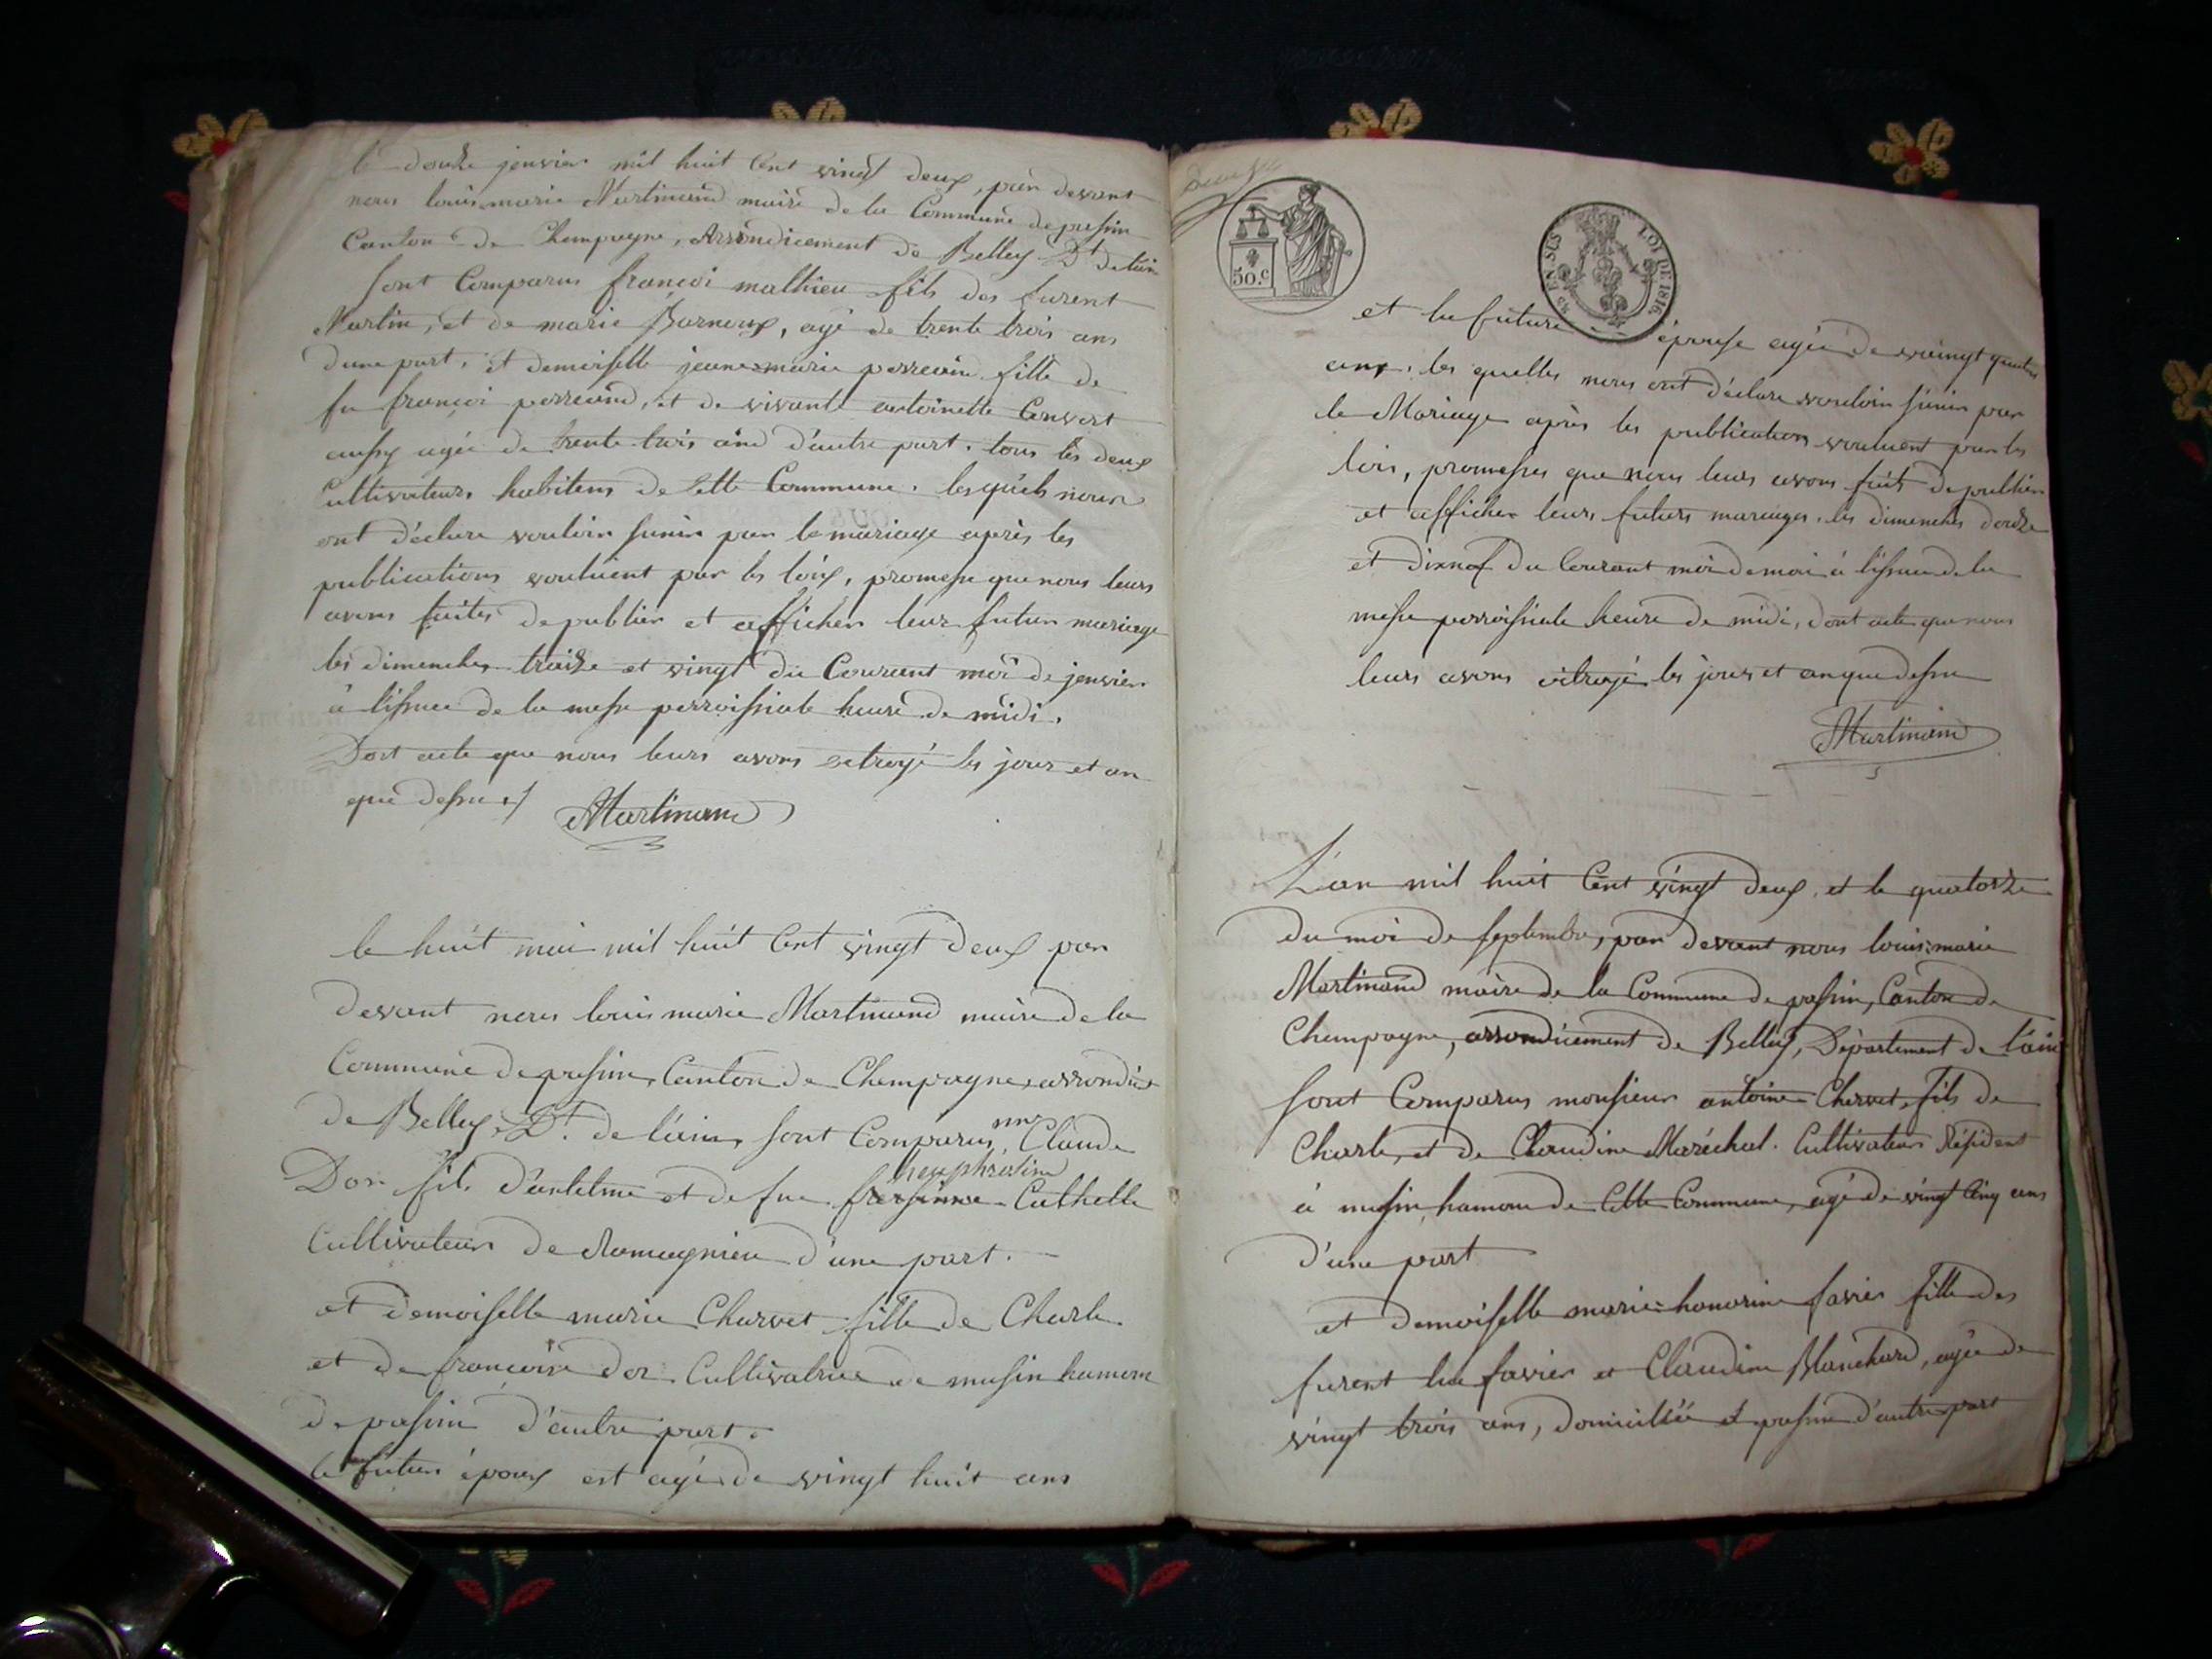 le douze jenvier mil huit Cent vingt deux, par devant
nous louis marie Martinand maire de la Commune de passin
Canton de Champagne, Arrondicement de Belley Dt de lain
sont Comparus françoi mathieu fils des furent
Martin, et de marie Barnoux, agé de trente trois ans
dune part, et demoiselle jeane marie perreand fille de
fu françoi perreand, et de vivante antoinette Convert
aussy agée de trente trois and d'autre part, tous les deux
Cultivateurs habitens de Cette Commune. lesquels nous
ont déclare vouloir sunir par le mariage après les
publications voulüent par les loix, promesse que nous leurs
avons faites de publier et afficher leur futur mariage
les dimenches traize et vingt du Courant moi de jenvier
à lissuee de la messe perroissiale heure de midi,
Dont acte que nous leurs avons octroyé les jour et an
que dessus/
Martinand
le huit mai mil huit Cent vingt deux par
devant nous louis marie Martinand maire de la
Commune de passin, Canton de Champagne, arrondict
de Belley, Dt. de lain, sont Comparus, mr Claude
Dor fils d'antelme et de fue heuphrasine Cathelle
Cultivateur de Romagnieu d'une part.
et demoiselle marie Charvet fille de Charle
et de françoise dor Cultivatrice de musin hamau
de passin d'autre part.
le futur époux est agé de vingt huit ans
50.c
EN SUS
LOI DE 1816.
et la future épouse agée de vuingt quatre
ans, les quelles nous ont déclare vouloir sunir par
le Mariage après les publications vouluent par les
lois, promesses que nous leurs avons faits de publier
et afficher leurs futurs mariages, les dimenches douze
et dixnof du Courant moi de mai à lissuee de la
messe perroissiale heure de midi, dont acte que nous
leurs avons octroyé les jours et an que dessu
Martinand
L'an mil huit Cent vingt deux, et le quatorze
du moi de septembre, par devant nous louis marie
Martinand maire de la Commune de passin, Canton de
Champagne, arrondicement de Belley, Département de lain
sont Comparus monsieur antoine Charvet, fils de
Charle, et de Claudine Maréchal. Cultivateur Résident
à musin, hamau de Cette Commune, agé de vingt Cinq ans
d'une part
et demoiselle marie honorine favier fille des
furent luc favier et Claudine Blanchard, agée de
vingt trois ans, domiciliée à passin d'autre part